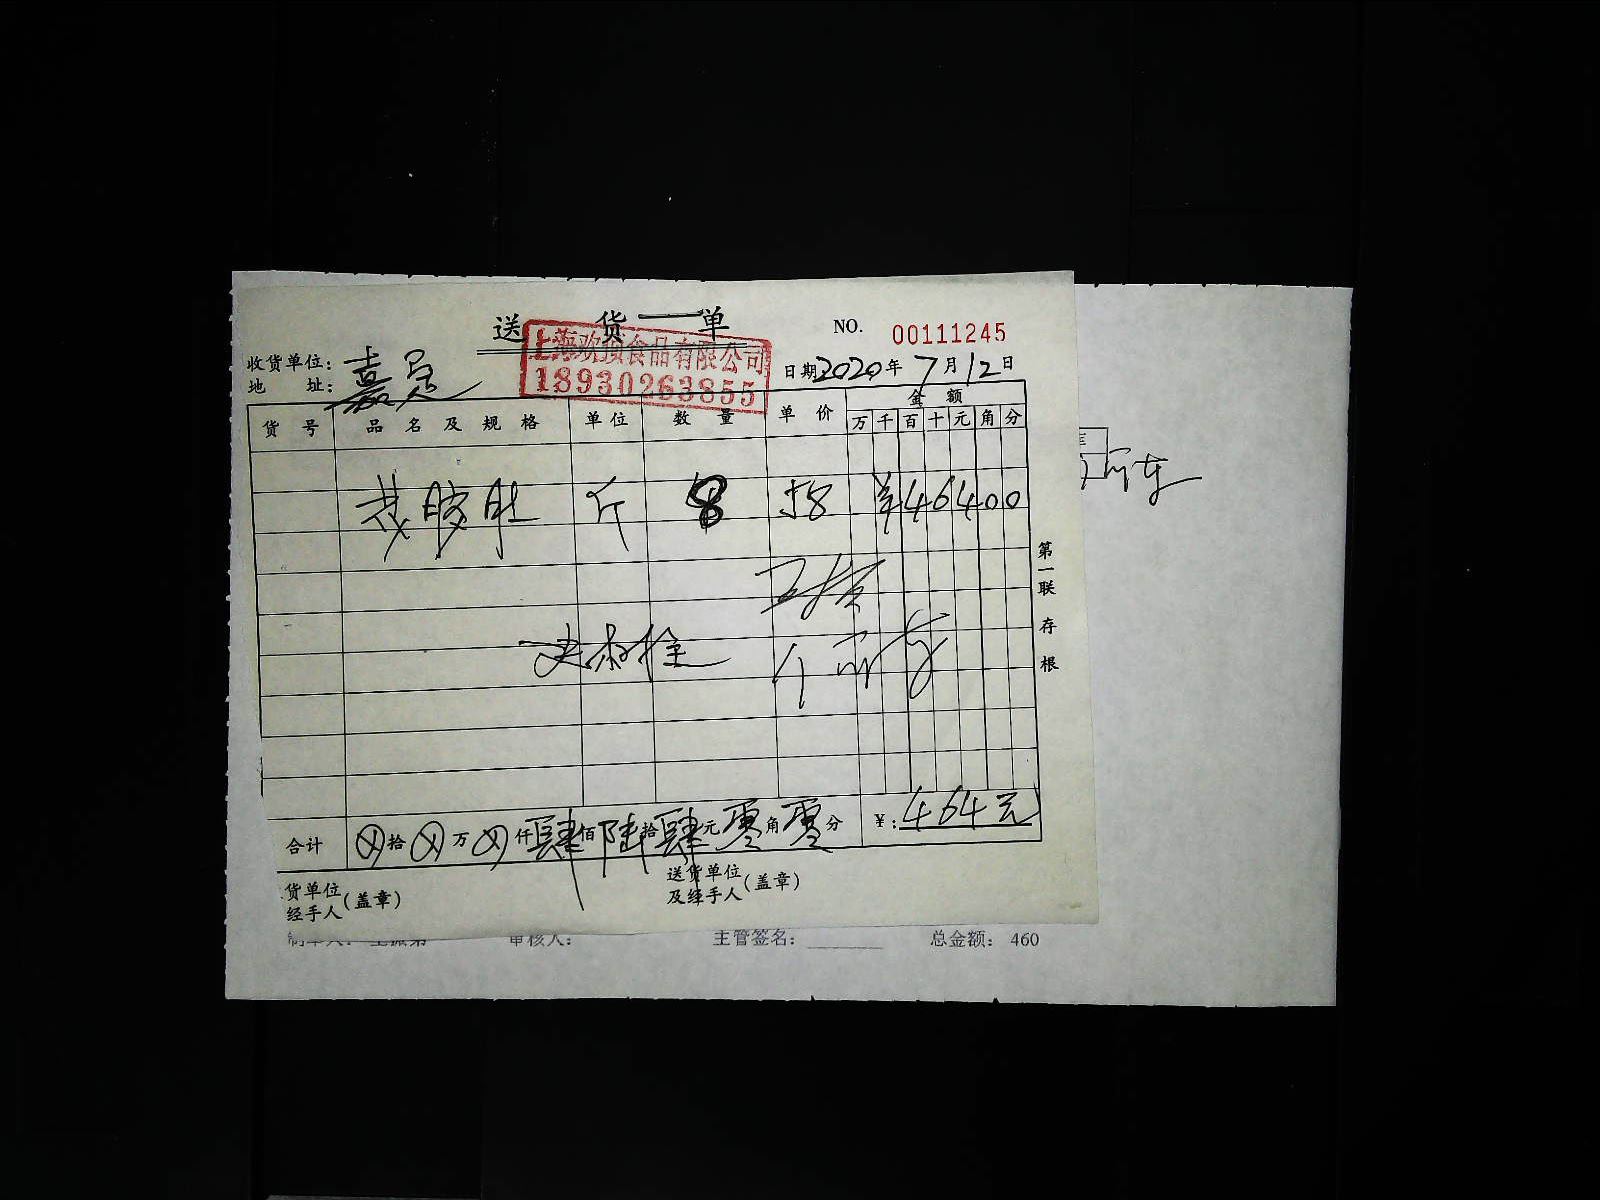 送货一单
NO. 00111245
上海欢顶食品有限公司
18930263855
收货单位:
地 址: 嘉定
日期 2020 年 7 月 12 日
货号 品名及规格 单位 数量 单价 金额
万 千 百 十 元 角 分
斤 8 58 ¥46400
第一联 存根
合计 ⊗拾⊗万⊗仟肆佰陆拾肆元零角零分 ¥: 464元
货单位
经手人 (盖章)
送货单位
及经手人 (盖章)
审核人: 主管签名: 总金额: 460